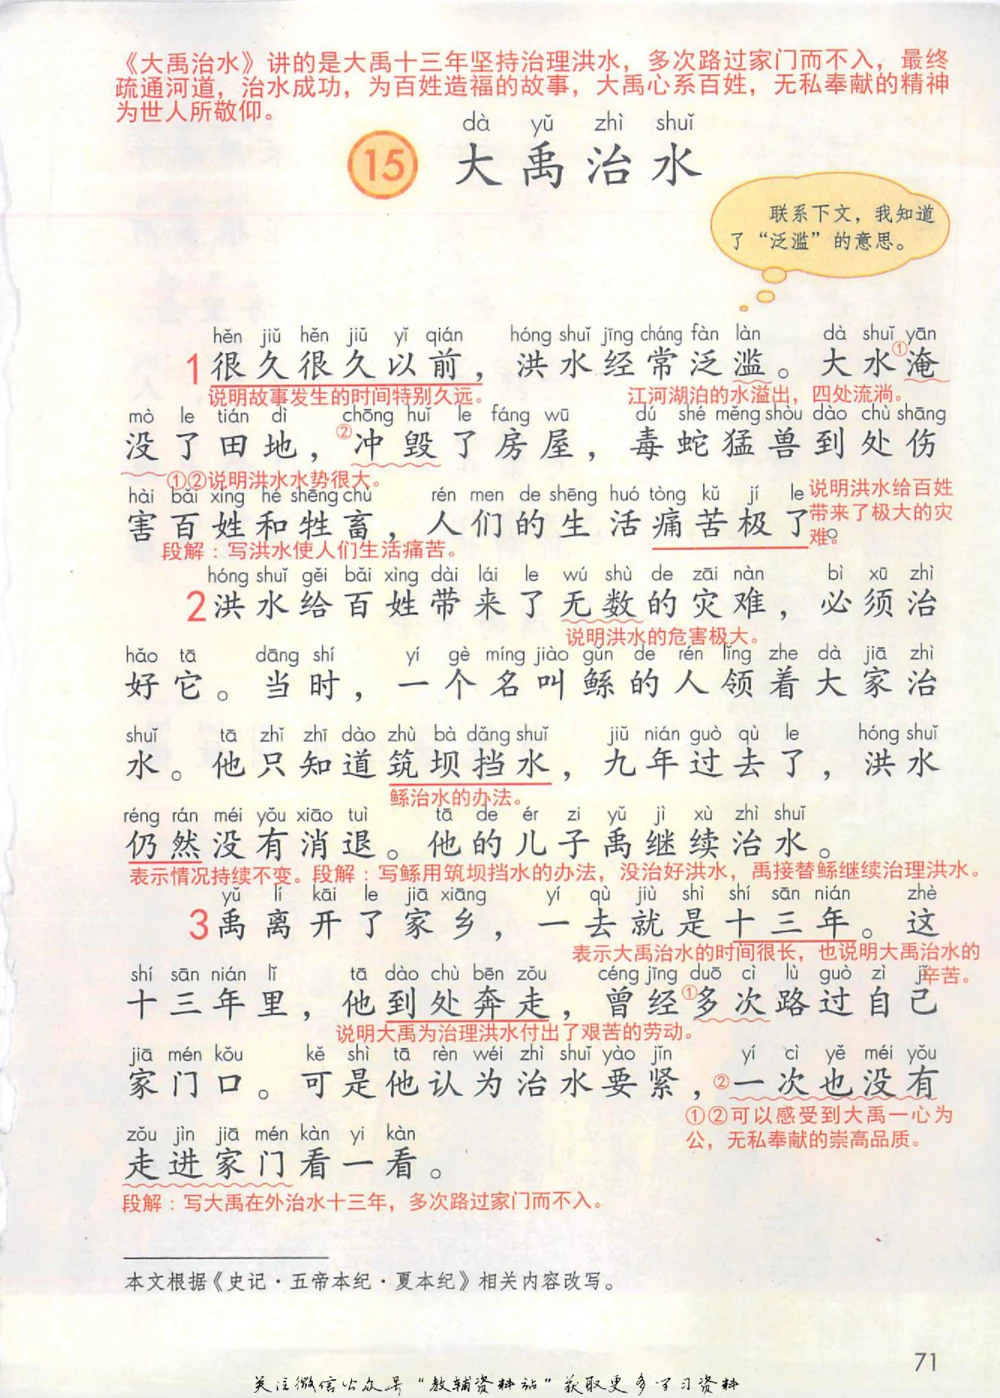 《大禹治水》讲的是大禹十三年坚持治理洪水，多次路过家门而不入，最终
疏通河道，治水成功，为百姓造福的故事，大禹心系百姓，无私奉献的精神
为世人所敬仰。
dà yǔ zhì shuǐ
15 大禹治水
联系下文，我知道
了“泛滥”的意思。
hěn jiǔ hěn jiǔ yǐ qián hóng shuǐ jīng cháng fàn làn dà shuǐ yān
1 很久很久以前，洪水经常泛滥。大水①淹
说明故事发生的时间特别久远。 江河湖泊的水溢出，四处流淌。
mò le tián dì chōng huǐ le fáng wū dú shé měng shòu dào chù shāng
没了田地，②冲毁了房屋，毒蛇猛兽到处伤
①②说明洪水水势很大。
hài bǎi xìng hé shēng chù rén men de shēng huó tòng kǔ jí le
害百姓和牲畜，人们的生活痛苦极了。
说明洪水给百姓
带来了极大的灾
难。
段解：写洪水使人们生活痛苦。
hóng shuǐ gěi bǎi xìng dài lái le wú shù de zāi nàn bì xū zhì
2 洪水给百姓带来了无数的灾难，必须治
说明洪水的危害极大。
hǎo tā dāng shí yí gè míng jiào gǔn de rén lǐng zhe dà jiā zhì
好它。当时，一个名叫鲧的人领着大家治
shuǐ tā zhǐ zhī dào zhù bà dǎng shuǐ jiǔ nián guò qù le hóng shuǐ
水。他只知道筑坝挡水，九年过去了，洪水
鲧治水的办法。
réng rán méi yǒu xiāo tuì tā de ér zi yǔ jì xù zhì shuǐ
仍然没有消退。他的儿子禹继续治水。
表示情况持续不变。段解：写鲧用筑坝挡水的办法，没治好洪水，禹接替鲧继续治理洪水。
yǔ lí kāi le jiā xiāng yí qù jiù shì shí sān nián zhè
3 禹离开了家乡，一去就是十三年。这
表示大禹治水的时间很长，也说明大禹治水的
辛苦。
shí sān nián lǐ tā dào chù bēn zǒu céng jīng duō cì lù guò zì jǐ
十三年里，他到处奔走，曾经①多次路过自己
说明大禹为治理洪水付出了艰苦的劳动。
jiā mén kǒu kě shì tā rèn wéi zhì shuǐ yào jǐn yí cì yě méi yǒu
家门口。可是他认为治水要紧，②一次也没有
①②可以感受到大禹一心为
公，无私奉献的崇高品质。
zǒu jìn jiā mén kàn yi kàn
走进家门看一看。
段解：写大禹在外治水十三年，多次路过家门而不入。
本文根据《史记·五帝本纪·夏本纪》相关内容改写。
71
关注微信公众号“教辅资料站”获取更多学习资料